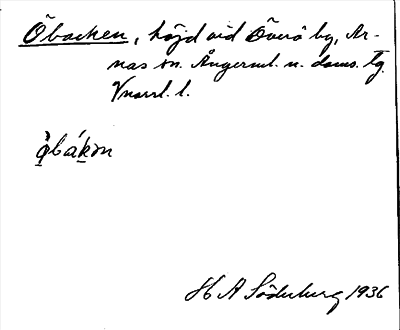 Öbacken, höjd vid Överö by, Ar-
näs sn. Ångerml. n. doms. tg.
Vnorrl. l.
H A Söderberg 1936